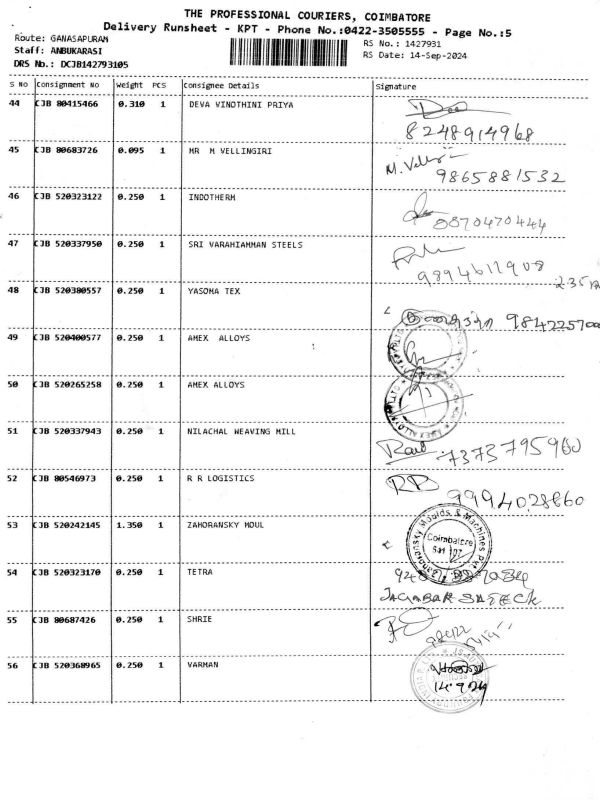 THE PROFESSIONAL COURIERS, COIMBATORE
Delivery Runsheet - KPT - Phone No.:0422-3505555 - Page No.:5
Route: GANASAPURAM RS No.: 1427931
Staff: ANBUKARASI RS Date: 14-Sep-2024
DRS No.: DCJB142793105
S No Consignment No Weight PCS Consignee Details Signature
44 CJB 80415466 0.310 1 DEVA VINOTHINI PRIYA
8248914968
45 CJB 80683726 0.095 1 MR M VELLINGIRI M. Velli
9865881532
46 CJB 520323122 0.250 1 INDOTHERM
8870470444
47 CJB 520337950 0.250 1 SRI VARAHIAMMAN STEELS
9894611908
48 CJB 520380557 0.250 1 YASOMA TEX 2.35
984225700
49 CJB 520400577 0.250 1 AMEX ALLOYS
50 CJB 520265258 0.250 1 AMEX ALLOYS
51 CJB 520337943 0.250 1 NILACHAL WEAVING MILL
7373795960
52 CJB 80546973 0.250 1 R R LOGISTICS RR
9994028860
53 CJB 520242145 1.350 1 ZAHORANSKY MOUL Zahoransky Moulds & Machines Pvt
Coimbatore
641 107
54 CJB 520323170 0.250 1 TETRA
JAGABAR SATECK
55 CJB 80687426 0.250 1 SHRIE
56 CJB 520368965 0.250 1 VARMAN
14.9.24